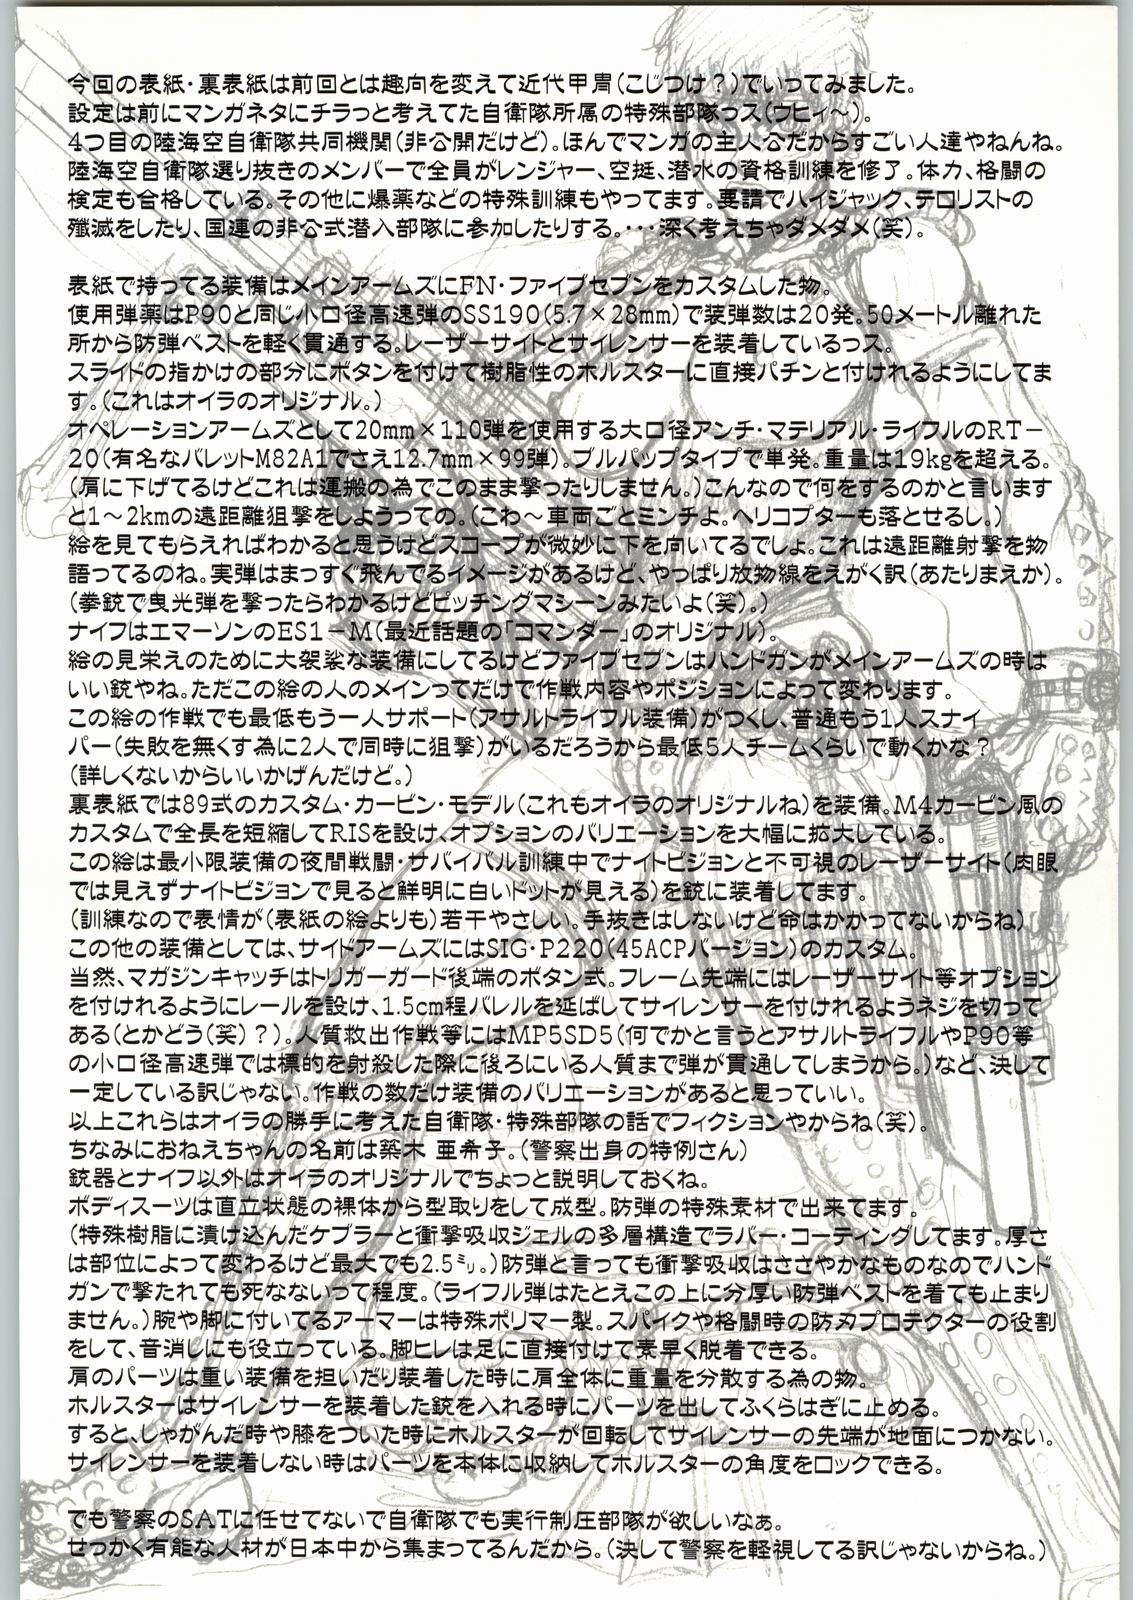 今回の表紙・裏表紙は前回とは趣向を変えて近代甲冑(こじつけ?)でいってみました。
設定は前にマンガネタにチラっと考えてた自衛隊所属の特殊部隊っス(ウヒィ〜)。
4つ目の陸海空自衛隊共同機関(非公開だけど)。ほんでマンガの主人公だからすごい人達やねんね。
陸海空自衛隊選り抜きのメンバーで全員がレンジャー、空挺、潜水の資格訓練を修了。体力、格闘の
検定も合格している。その他に爆薬などの特殊訓練もやってます。要請でハイジャック、テロリストの
殲滅をしたり、国連の非公式潜入部隊に参加したりする。・・・深く考えちゃダメダメ(笑)。
表紙で持ってる装備はメインアームズにFN・ファイブセブンをカスタムした物。
使用弾薬はP90と同じ小口径高速弾のSS190(5.7×28mm)で装弾数は20発。50メートル離れた
所から防弾ベストを軽く貫通する。レーザーサイトとサイレンサーを装着しているっス。
スライドの指かけの部分にボタンを付けて樹脂性のホルスターに直接パチンと付けれるようにしてま
す。(これはオイラのオリジナル。)
オペレーションアームズとして20mm×110弾を使用する大口径アンチ・マテリアル・ライフルのRT−
20(有名なバレットM82A1でさえ12.7mm×99弾)。ブルパップタイプで単発。重量は19kgを超える。
(肩に下げてるけどこれは運搬の為でこのまま撃ったりしません。)こんなので何をするのかと言います
と1〜2kmの遠距離狙撃をしようっての。(こわ〜車両ごとミンチよ。ヘリコプターも落とせるし。)
絵を見てもらえればわかると思うけどスコープが微妙に下を向いてるでしょ。これは遠距離射撃を物
語ってるのね。実弾はまっすぐ飛んでるイメージがあるけど、やっぱり放物線をえがく訳(あたりまえか)。
(拳銃で曳光弾を撃ったらわかるけどピッチングマシーンみたいよ(笑)。)
ナイフはエマーソンのES1−M(最近話題の「コマンダー」のオリジナル)。
絵の見栄えのために大袈裟な装備にしてるけどファイブセブンはハンドガンがメインアームズの時は
いい銃やね。ただこの絵の人のメインってだけで作戦内容やポジションによって変わります。
この絵の作戦でも最低もう一人サポート(アサルトライフル装備)がつくし、普通もう1人スナイ
パー(失敗を無くす為に2人で同時に狙撃)がいるだろうから最低5人チームくらいで動くかな?
(詳しくないからいいかげんだけど。)
裏表紙では89式のカスタム・カービン・モデル(これもオイラのオリジナルね)を装備。M4カービン風の
カスタムで全長を短縮してRISを設け、オプションのバリエーションを大幅に拡大している。
この絵は最小限装備の夜間戦闘・サバイバル訓練中でナイトビジョンと不可視のレーザーサイト(肉眼
では見えずナイトビジョンで見ると鮮明に白いドットが見える)を銃に装着してます。
(訓練なので表情が(表紙の絵よりも)若干やさしい。手抜きはしないけど命はかかってないからね)
この他の装備としては、サイドアームズにはSIG・P220(45ACPバージョン)のカスタム。
当然、マガジンキャッチはトリガーガード後端のボタン式。フレーム先端にはレーザーサイト等オプション
を付けれるようにレールを設け、1.5cm程バレルを延ばしてサイレンサーを付けれるようネジを切って
ある(とかどう(笑)?)。人質救出作戦等にはMP5SD5(何でかと言うとアサルトライフルやP90等
の小口径高速弾では標的を射殺した際に後ろにいる人質まで弾が貫通してしまうから。)など、決して
一定している訳じゃない。作戦の数だけ装備のバリエーションがあると思っていい。
以上これらはオイラの勝手に考えた自衛隊・特殊部隊の話でフィクションやからね(笑)。
ちなみにおねえちゃんの名前は築木 亜希子。(警察出身の特例さん)
銃器とナイフ以外はオイラのオリジナルでちょっと説明しておくね。
ボディスーツは直立状態の裸体から型取りをして成型。防弾の特殊素材で出来てます。
(特殊樹脂に漬け込んだケブラーと衝撃吸収ジェルの多層構造でラバー・コーティングしてます。厚さ
は部位によって変わるけど最大でも2.5㍉。)防弾と言っても衝撃吸収はささやかなものなのでハンド
ガンで撃たれても死なないって程度。(ライフル弾はたとえこの上に分厚い防弾ベストを着ても止まり
ません。)腕や脚に付いてるアーマーは特殊ポリマー製。スパイクや格闘時の防刃プロテクターの役割
をして、音消しにも役立っている。脚ヒレは足に直接付けて素早く脱着できる。
肩のパーツは重い装備を担いだり装着した時に肩全体に重量を分散する為の物。
ホルスターはサイレンサーを装着した銃を入れる時にパーツを出してふくらはぎに止める。
すると、しゃがんだ時や膝をついた時にホルスターが回転してサイレンサーの先端が地面につかない。
サイレンサーを装着しない時はパーツを本体に収納してホルスターの角度をロックできる。
でも警察のSATに任せてないで自衛隊でも実行制圧部隊が欲しいなぁ。
せっかく有能な人材が日本中から集まってるんだから。(決して警察を軽視してる訳じゃないからね。)